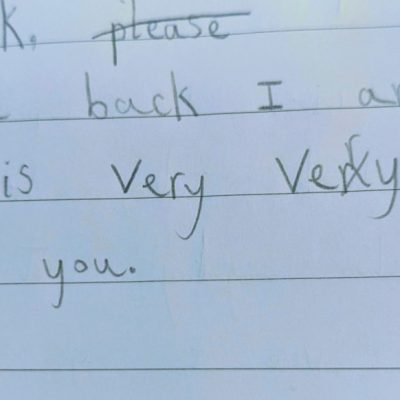 k. please
back I
is very very
you.